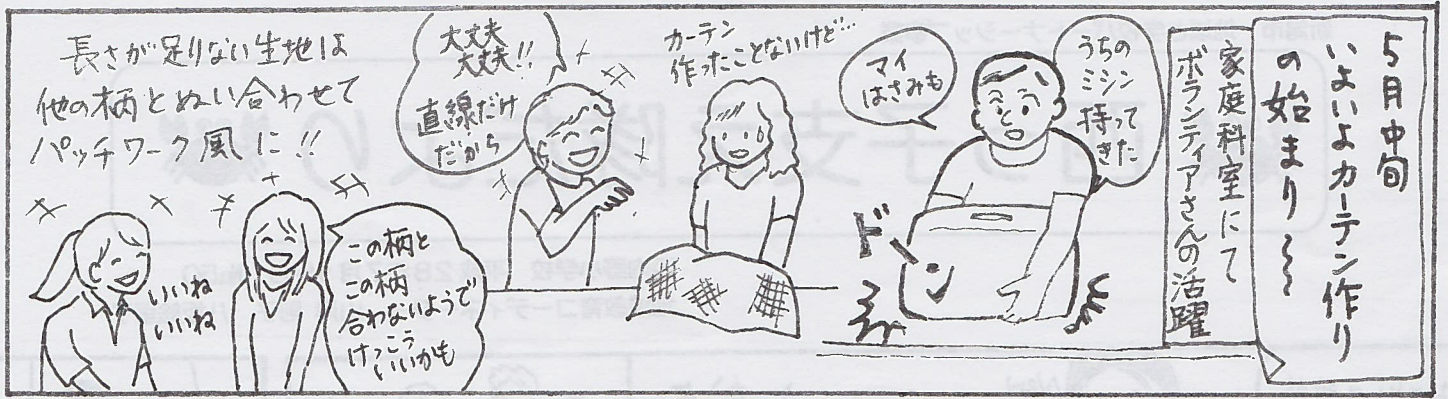 5月中旬
いよいよカーテン作り
の始まり〜〜
家庭科室にて
ボランティアさんの活躍
うちの
ミシン
持って
きた
マイ
はさみも
ドーン
カーテン
作ったことないけど…
大丈夫
大丈夫!!
直線だけ
だから
長さが足りない生地は
他の柄とぬい合わせて
パッチワーク風に!!
この柄と
この柄
合わないようで
けっこう
いいかも
いいね
いいね